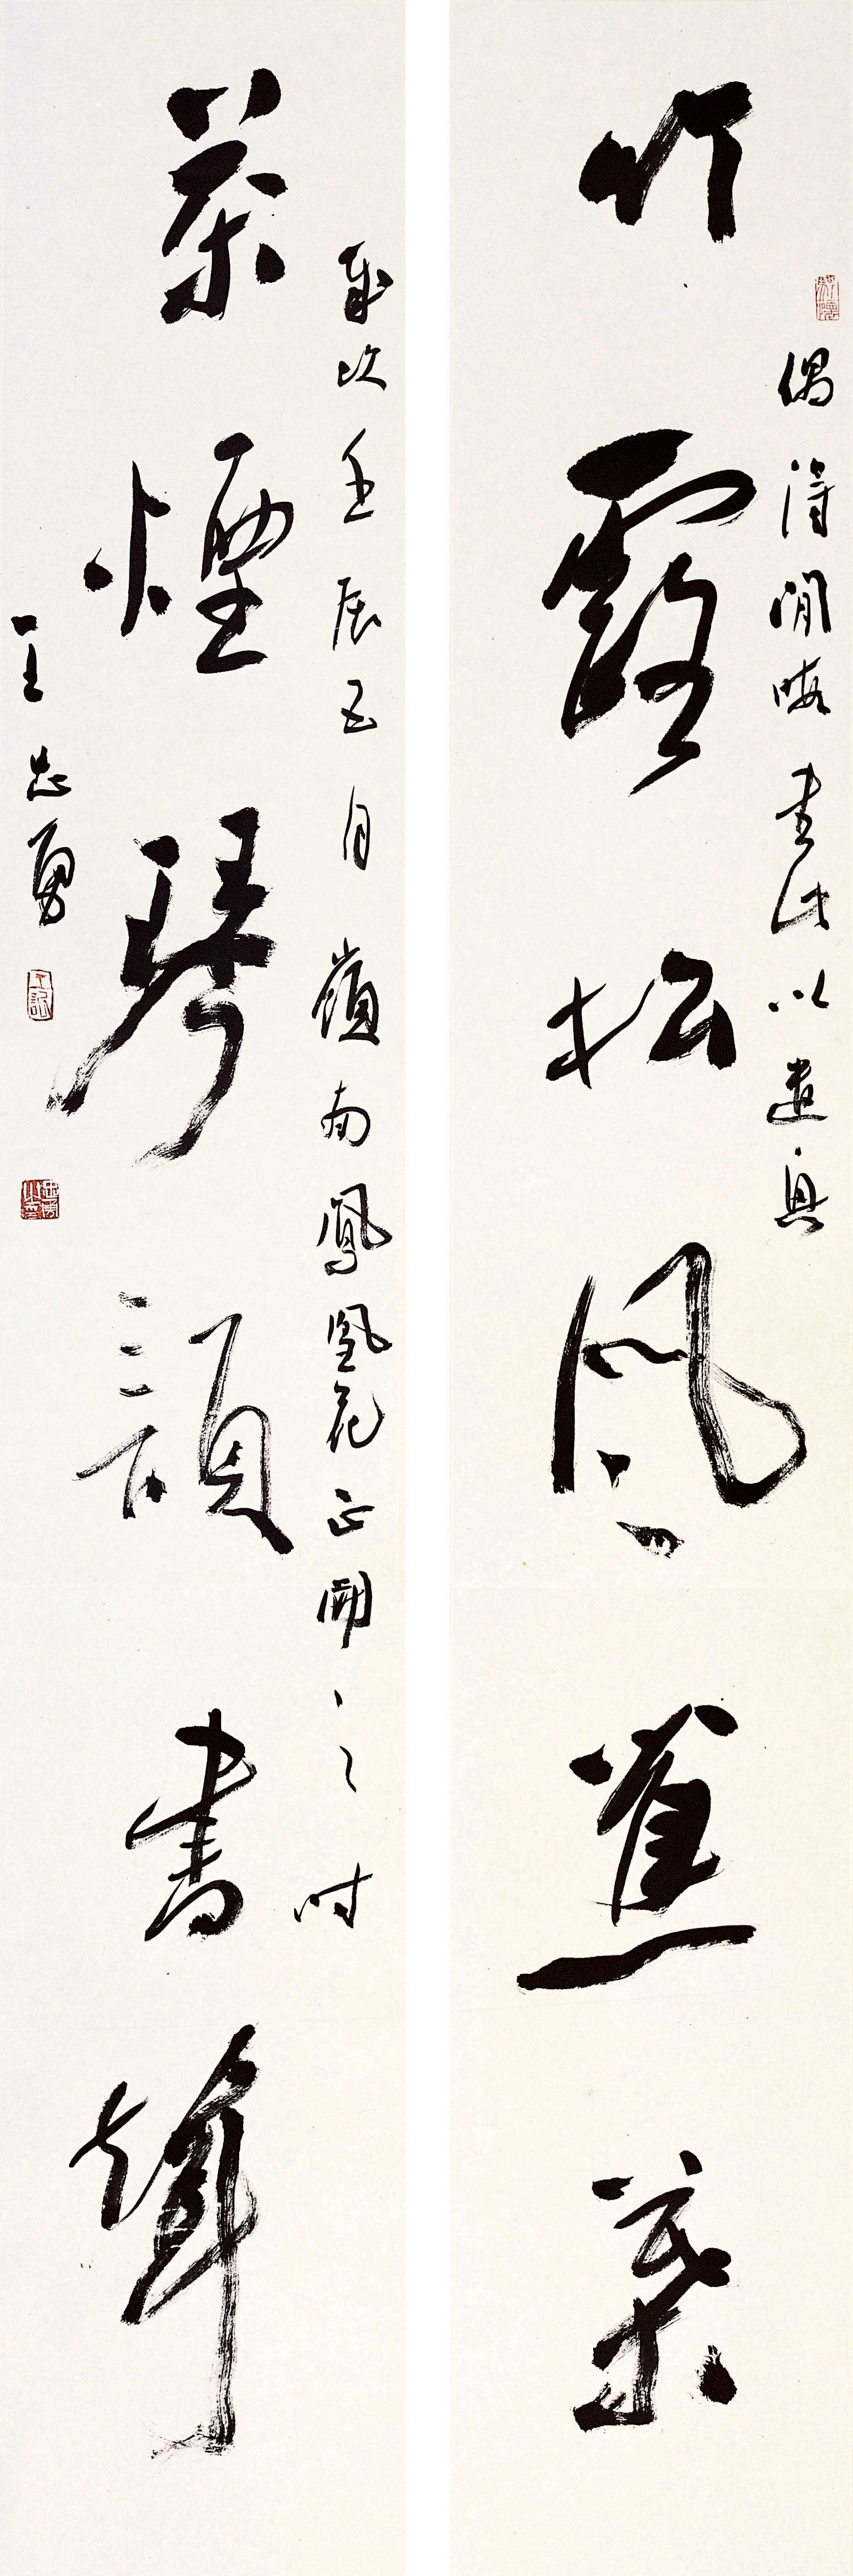 偶得閒暇書此以遣興
竹露松風蕉葉
歲次壬辰五月嶺南鳳凰花正開之時
茶煙琴韻書聲
王忠勇